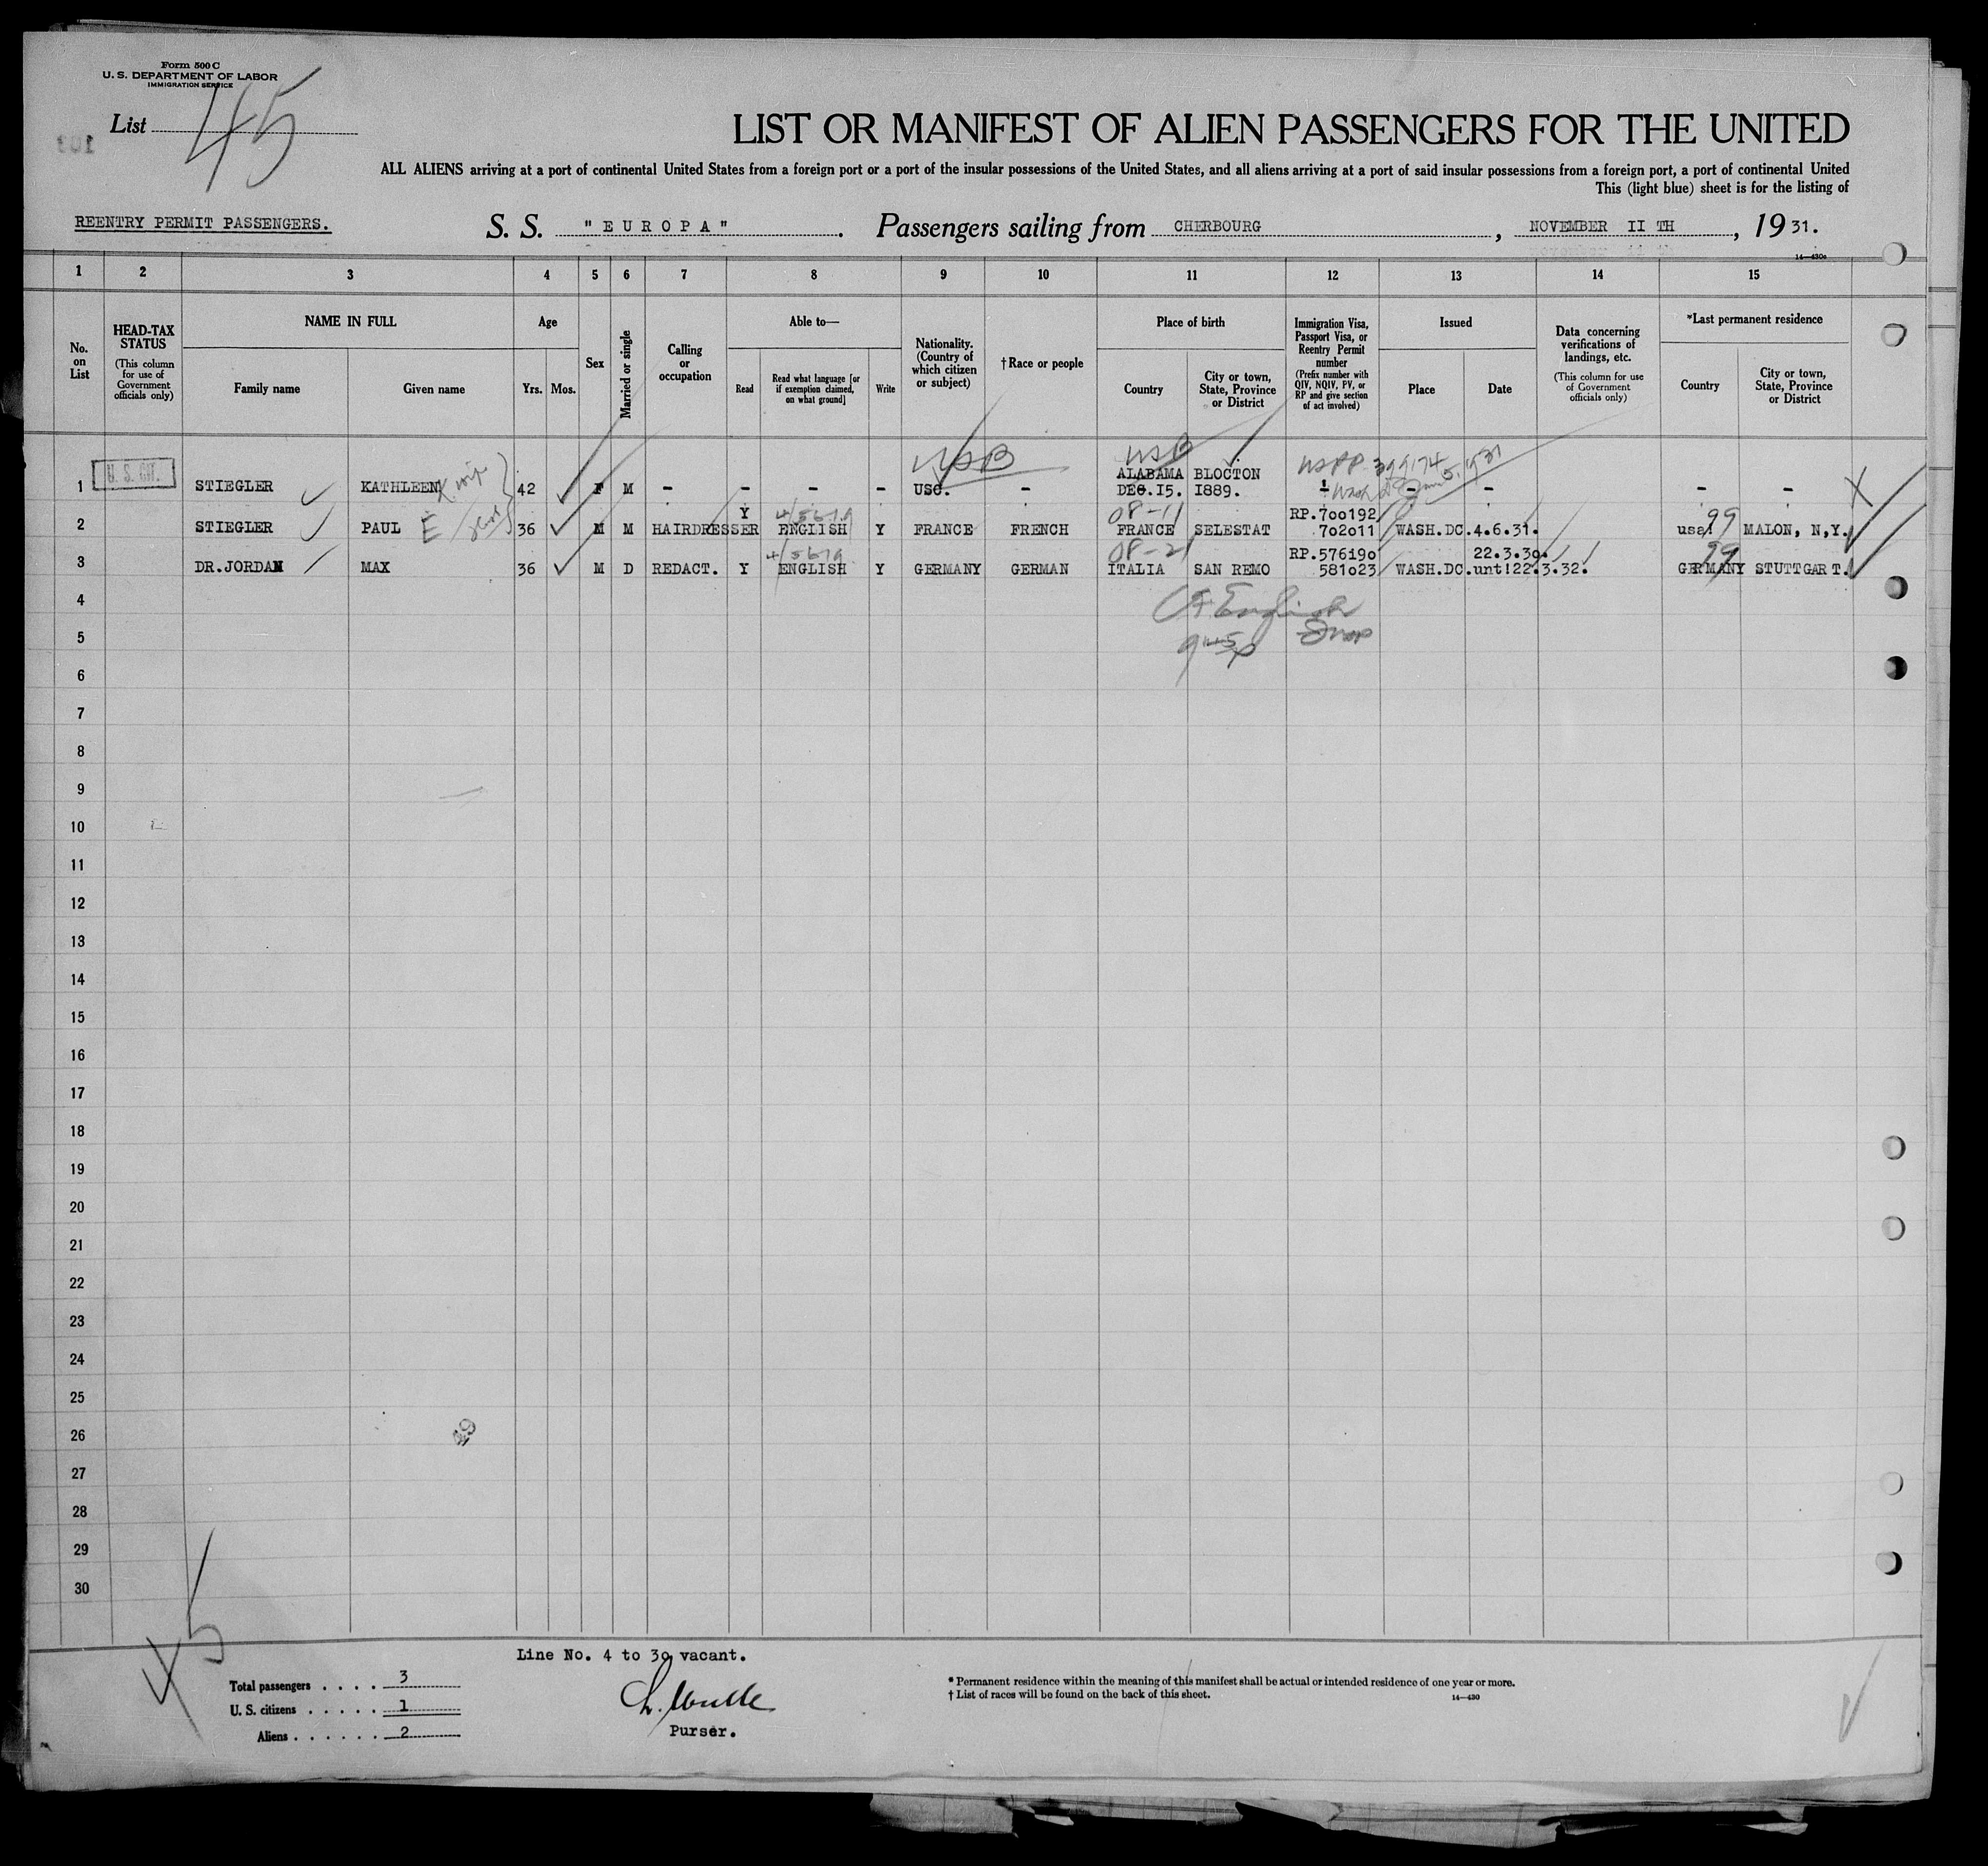 Form 500 C
U. S. DEPARTMENT OF LABOR
IMMIGRATION SERVICE
List 45
LIST OR MANIFEST OF ALIEN PASSENGERS FOR THE UNITED
ALL ALIENS arriving at a port of continental United States from a foreign port or a port of the insular possessions of the United States, and all aliens arriving at a port of said insular possessions from a foreign port, a port of continental United
This (light blue) sheet is for the listing of
REENTRY PERMIT PASSENGERS. S. S. "EUROPA". Passengers sailing from CHERBOURG, NOVEMBER II TH, 1931.
14—430c
1 2 3 4 5 6 7 8 9 10 11 12 13 14 15
No. on List
HEAD-TAX STATUS
(This column for use of Government officials only)
NAME IN FULL
Family name Given name
Age
Yrs. Mos.
Sex
Married or single
Calling or occupation
Able to—
Read
Read what language [or if exemption claimed, on what ground]
Write
Nationality. (Country of which citizen or subject)
†Race or people
Place of birth
Country
City or town, State, Province or District
Immigration Visa, Passport Visa, or Reentry Permit number
(Prefix number with QIV, NQIV, PV, or RP and give section of act involved)
Issued
Place Date
Data concerning verifications of landings, etc.
(This column for use of Government officials only)
*Last permanent residence
Country
City or town, State, Province or District
USB USB
ALABAMA BLOCTON USPP 399174
1 U. S. CIT. STIEGLER KATHLEEN X wife 42 F M - - - - USC. - DEC.15. 1889. - - - - -
Y 4/5679 08-11 RP.700192 99
2 STIEGLER PAUL E 36 M M HAIRDRESSER ENGLISH Y FRANCE FRENCH FRANCE SELESTAT 702011 WASH.DC.4.6.31. usa! MALON, N,Y.
4/5679 08-21 RP.576190 22.3.30. 99
3 DR.JORDAN MAX 36 M D REDACT. Y ENGLISH Y GERMANY GERMAN ITALIA SAN REMO 581023 WASH.DC.unt!22.3.32. GERMANY STUTTGART.
4
5
6
7
8
9
10
11
12
13
14
15
16
17
18
19
20
21
22
23
24
25
26
27
28
29
30
45
Line No. 4 to 30 vacant.
Total passengers . . . . 3
U. S. citizens . . . . . 1
Aliens . . . . . . 2
Purser.
* Permanent residence within the meaning of this manifest shall be actual or intended residence of one year or more.
† List of races will be found on the back of this sheet.
14—430